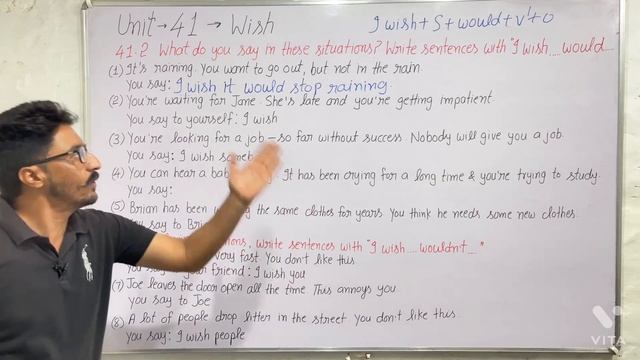 Unit → 41 → Wish
I wish + S + would + V¹ + O
41.2 What do you say in these situations? Write sentences with "I wish ... would ...
(1) It's raining. You want to go out, but not in the rain.
You say: I wish it would stop raining.
(2) You're waiting for Jane. She's late and you're getting impatient.
You say to yourself: I wish
(3) You're looking for a job – so far without success. Nobody will give you a job.
You say: I wish
(4) You can hear a It has been crying for a long time & you're trying to study.
You say:
(5) Brian has been the same clothes for years. You think he needs some new clothes.
say to
write sentences with "I wish ... wouldn't ..."
very fast. You don't like this
your friend: I wish you
(7) Joe leaves the door open all the time. This annoys you.
you say to Joe
(8) A lot of people drop litter in the street. You don't like this.
You say: I wish people
VITA